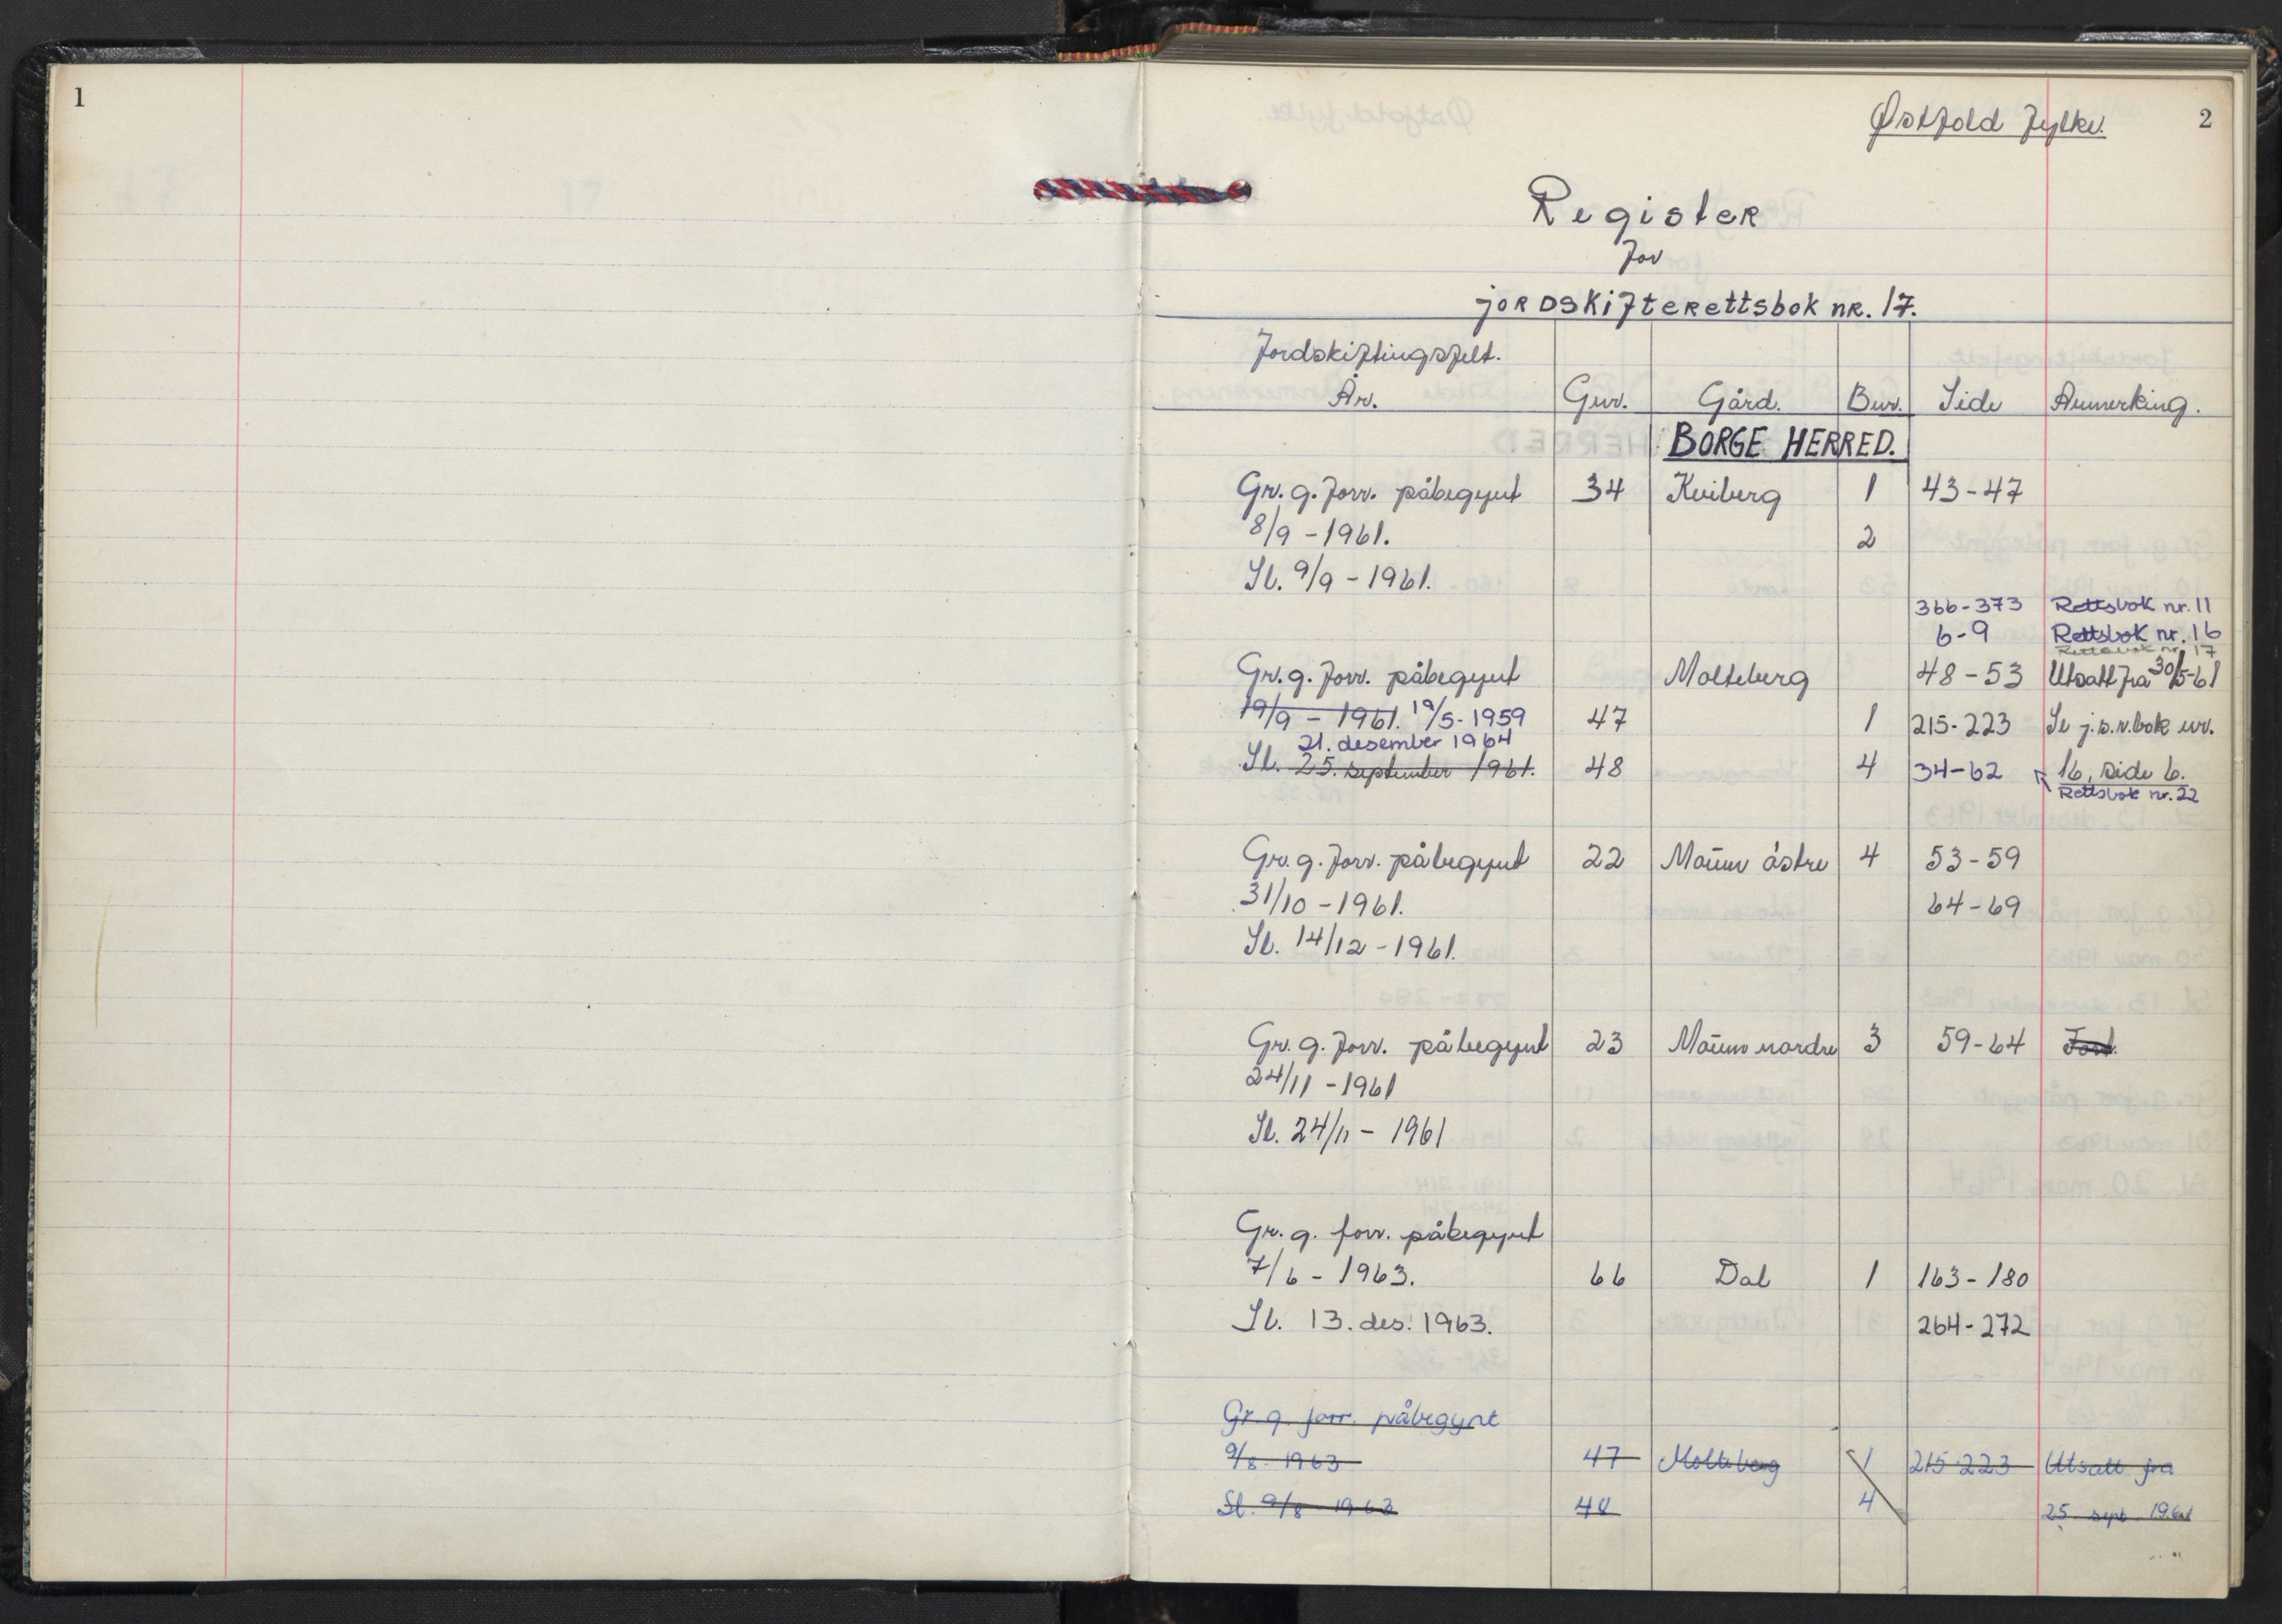 1
Østfold Fylke. 2
Register
for
jordskifterettsbok nr. 17.
Jordskiftingsfelt.
År. Gnr. Gård. Bnr. Side Anmerking.
BORGE HERRED.
Gr. g. forr. påbegynt 34 Kviberg 1 43-47
8/9 - 1961. 2
Sl. 9/9 - 1961.
366-373 Rettsbok nr. 11
6-9 Rettsbok nr. 16
Rettsbok nr. 17
Gr. g. forr. påbegynt Molteberg 48-53 Utsatt fra 30/5-61
19/9 - 1961. 19/5-1959 47 1 215-223 Se j.s.r.bok nr.
21. desember 1964
Sl. 25. september 1961. 48 4 34-62 16, side 6.
Rettsbok nr. 22
Gr. g. forr. påbegynt 22 Maum østre 4 53-59
31/10 - 1961. 64-69
Sl. 14/12 - 1961.
Gr. g. forr. påbegynt 23 Maum nordre 3 59-64
24/11 - 1961
Sl. 24/11 - 1961
Gr. g. forr. påbegynt
7/6 - 1963. 66 Dal 1 163-180
Sl. 13. des. 1963. 264-272
Gr. g. forr. påbegynt
9/8 1963 47 Molteberg 1 215-223 Utsatt fra
Sl. 9/8 1963 48 4 25. sept. 1961